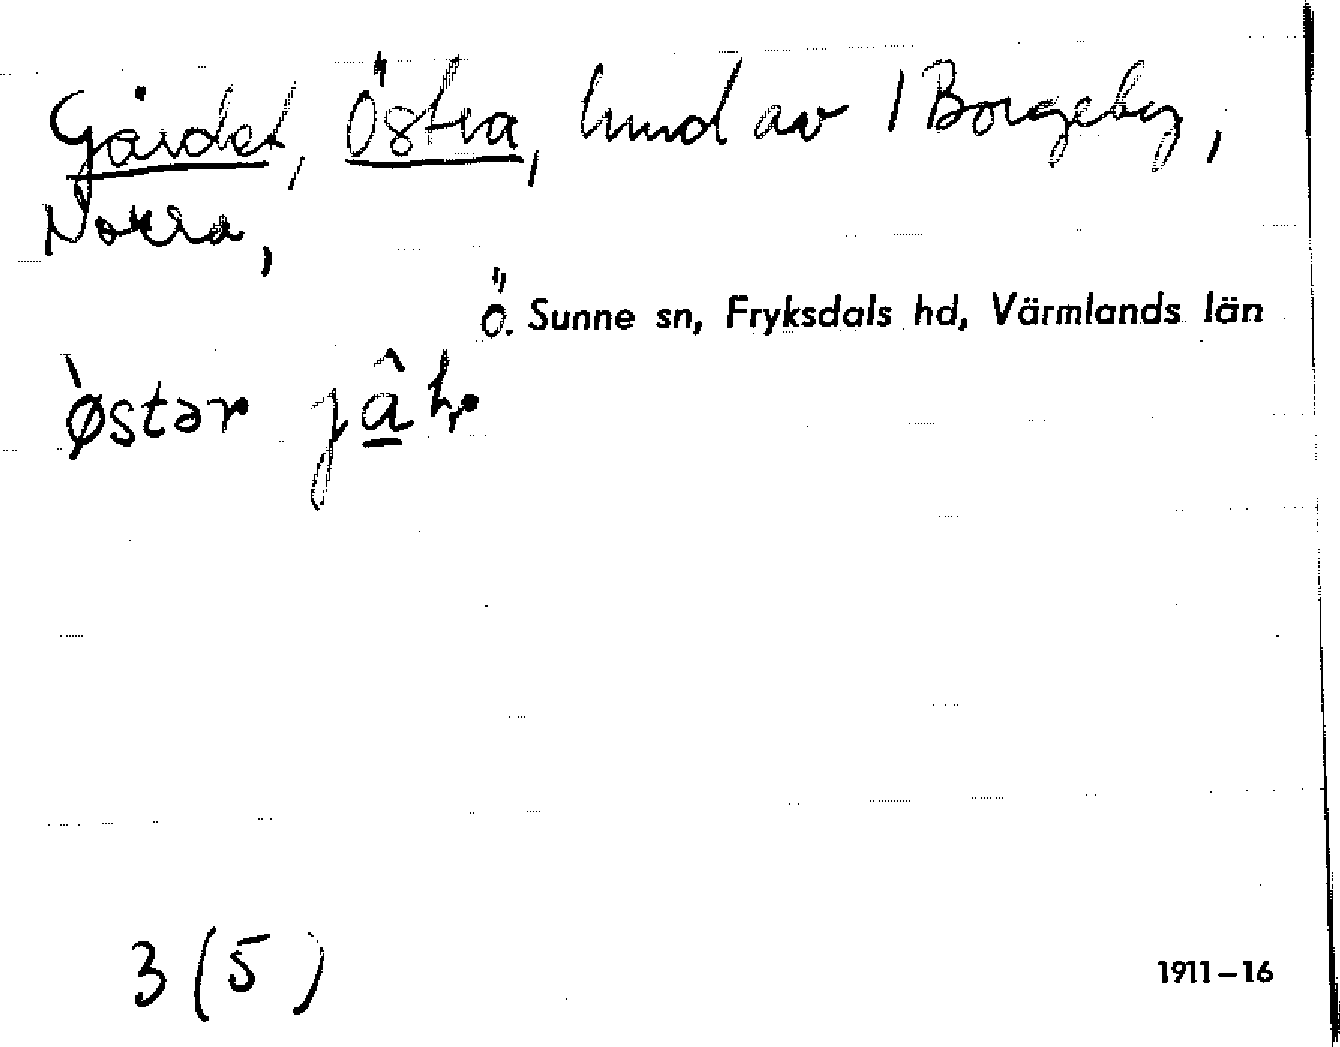 Gärdet, Östra, hmd av 1 Borgeby,
Norra,
Ö. Sunne sn, Fryksdals hd, Värmlands län
`østər jâ
3 (5)
1911–16